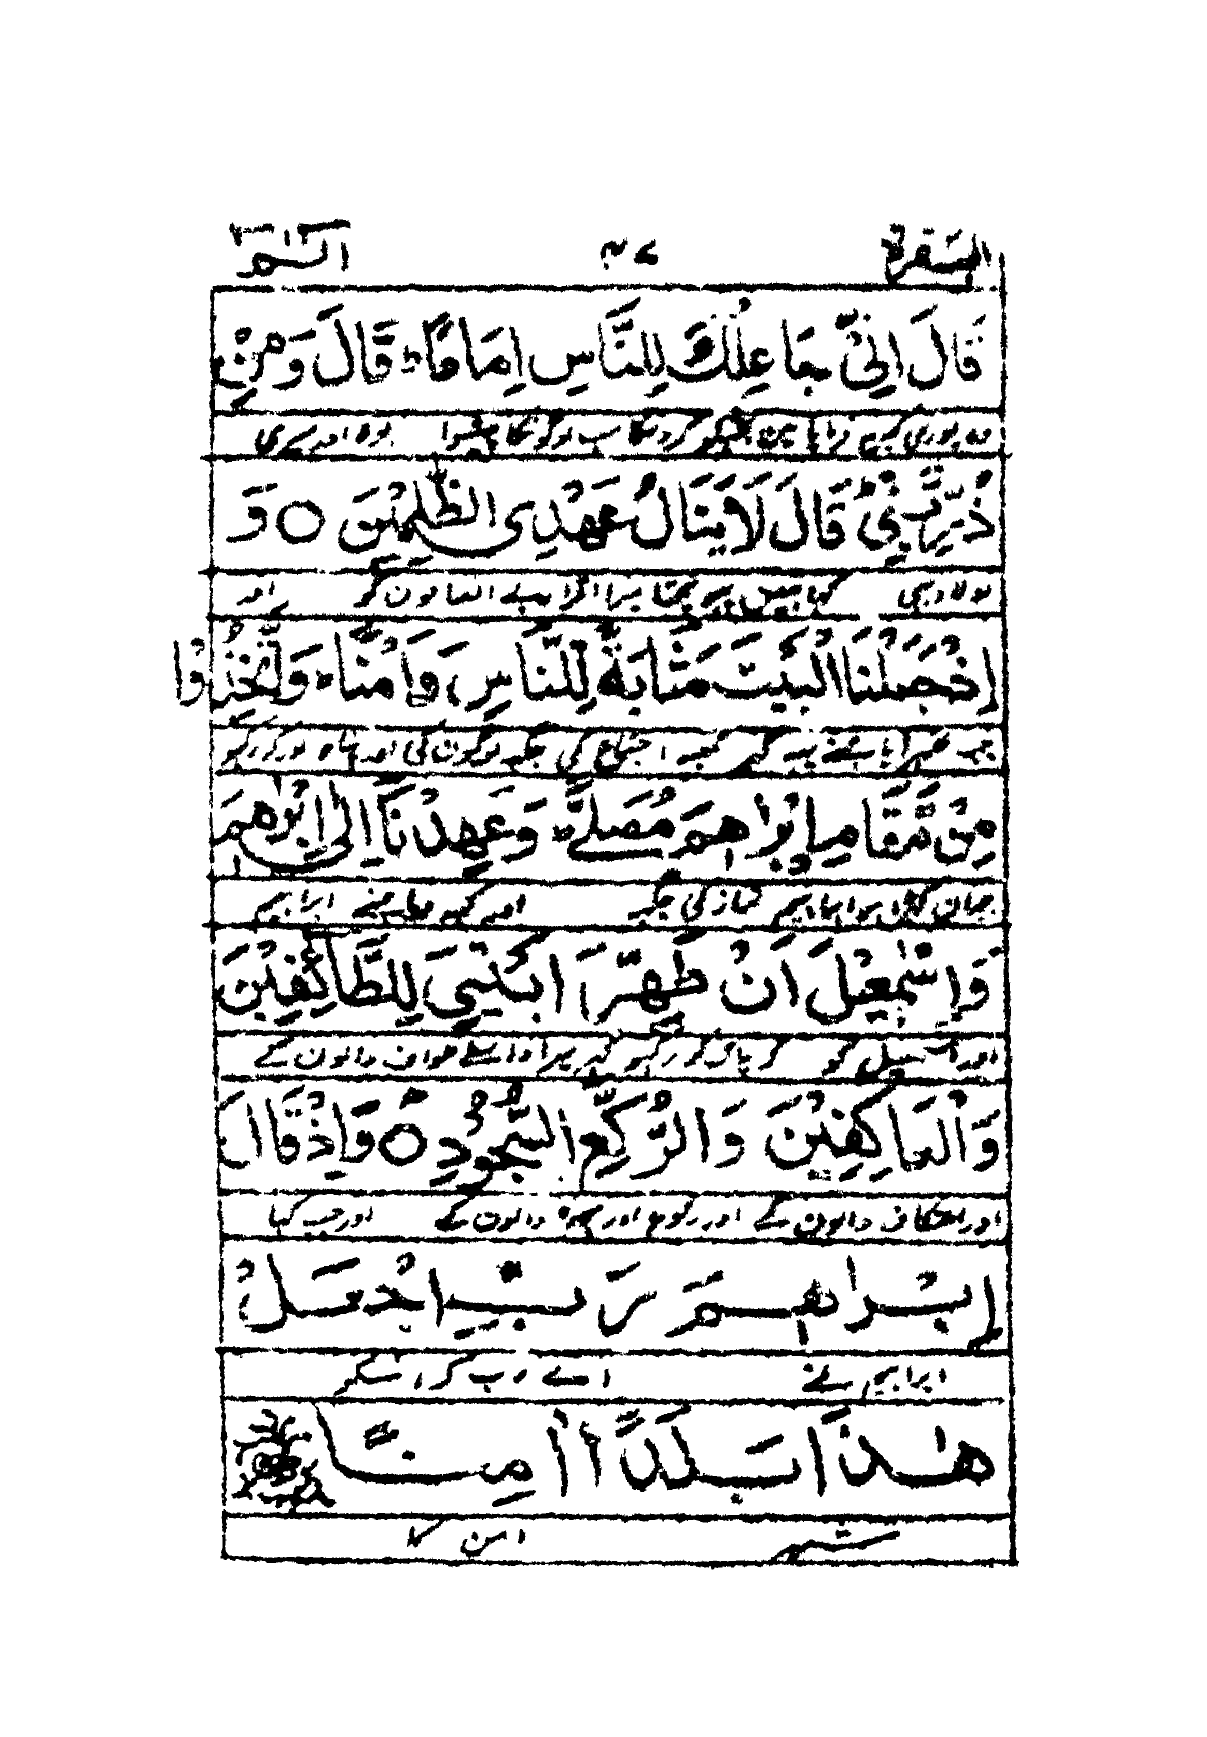 البقرة ٤٧ الٓمّٓ
قَالَ اِنِّیْ جَاعِلُكَ لِلنَّاسِ اِمَامًا ؕ قَالَ وَ مِنْ
ذُرِّیَّتِیْ ؕ قَالَ لَا یَنَالُ عَهْدِی الظّٰلِمِیْنَ ○ وَ
نہیں پہنچتا میرا اقرار اور
اِذْ جَعَلْنَا الْبَیْتَ مَثَابَةً لِّلنَّاسِ وَ اَمْنًا ؕ وَ اتَّخِذُوْا
جب کعبہ اجتماع کی جگہ لوگون کی اور پناہ اور کر رکھو
مِنْ مَّقَامِ اِبْرٰهٖمَ مُصَلًّی ؕ وَ عَهِدْنَاۤ اِلٰۤی اِبْرٰهٖمَ
جہان کھڑا ہوا ابراہیم نماز کی جگہ اور کہہ دیا ہمنے ابراہیم
وَ اِسْمٰعِیْلَ اَنْ طَهِّرَا بَیْتِیَ لِلطَّآىِٕفِیْنَ
اور اسمعیل کو کہ پاک کر رکھو گھر میرا واسطے طواف والون کے
وَ الْعٰكِفِیْنَ وَ الرُّكَّعِ السُّجُوْدِ ○ وَ اِذْ قَالَ
اور اعتکاف والون کے اور رکوع اور سجدہ والون کے اور جب کہا
اِبْرٰهٖمُ رَبِّ اجْعَلْ
ابراہیم نے اے رب کر اسکو
هٰذَا بَلَدًا اٰمِنًا
شہر امن کا